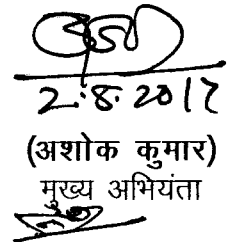 2.8.2017
(अशोक कुमार)
मुख्य अभियंता